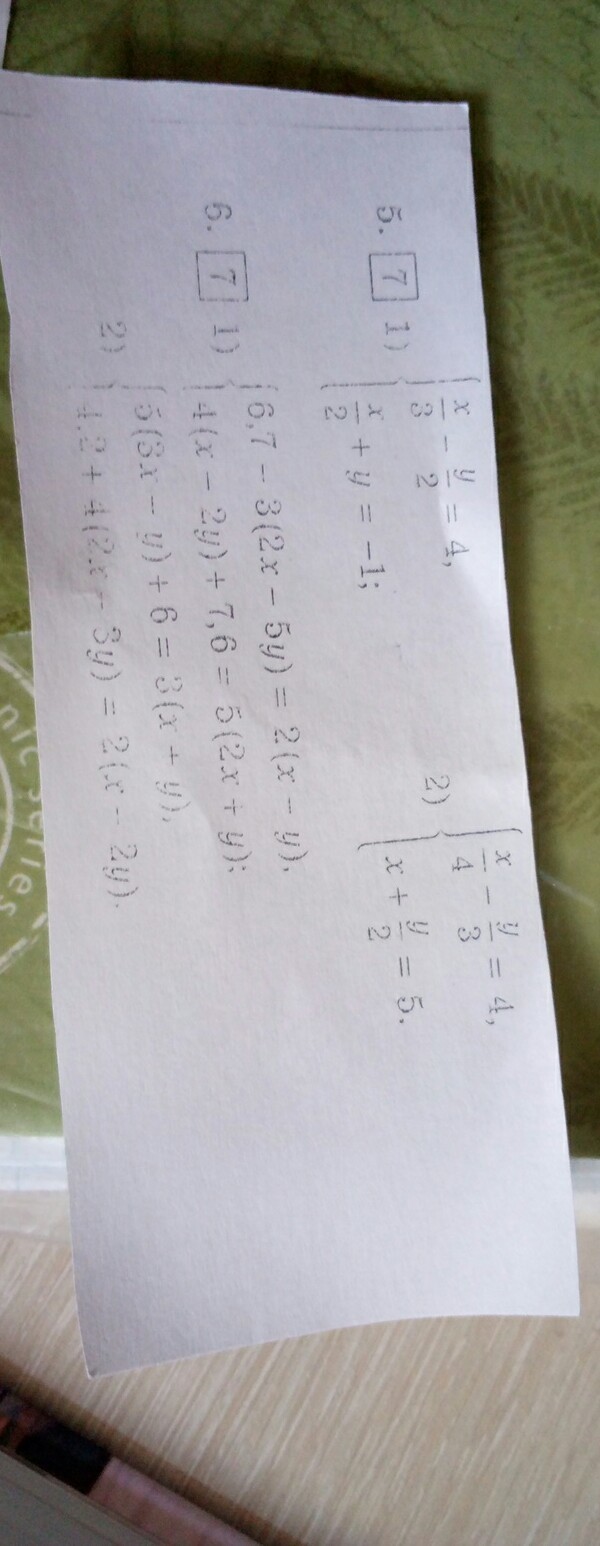 5. 7 1) { x/3 − y/2 = 4, x/2 + y = −1;
2) { x/4 − y/3 = 4, x + y/2 = 5.
6. 7 1) { 6,7 − 3(2x − 5y) = 2(x − y),
4(x − 2y) + 7,6 = 5(2x + y);
2) { 5(3x − y) + 6 = 3(x + y),
4,2 + 4(2x − 3y) = 2(x − 2y).
series